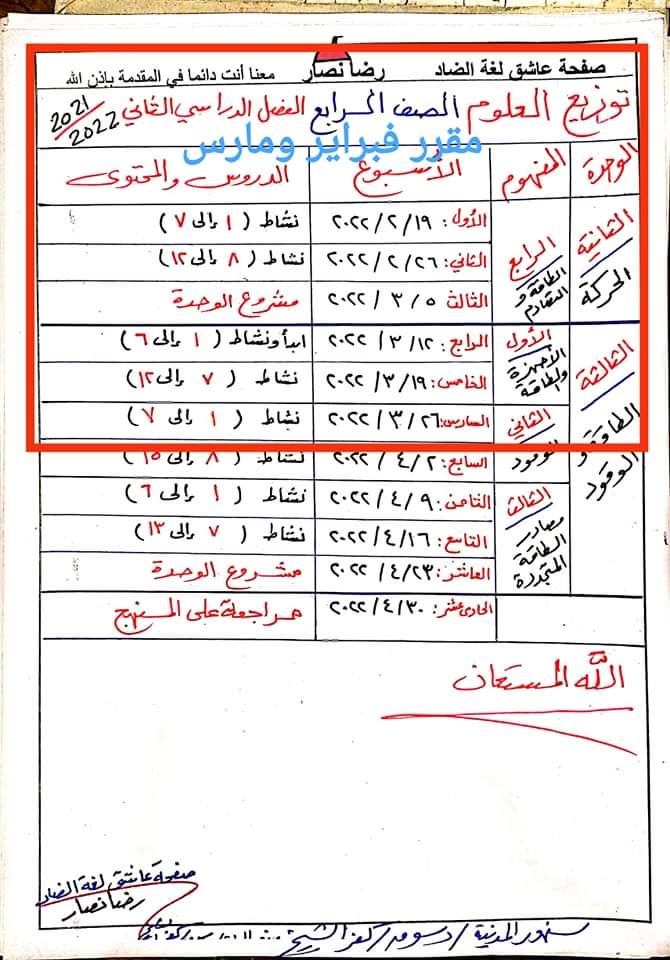 صفحة عاشق لغة الضاد رضا نصار معنا أنت دائما في المقدمة بإذن الله
توزيع العلوم الصف الرابع الفصل الدراسي الثاني 2021/2022
مقرر فبراير ومارس
الوحدة المفهوم الأسبوع الدروس والمحتوى
الثانية الحركة
الرابع الطاقة و التصادم
الأول: ٢٠٢٢/٢/١٩ نشاط (١ إلى ٧)
الثاني: ٢٠٢٢/٢/٢٦ نشاط (٨ إلى ١٢)
الثالث ٢٠٢٢/٣/٥ مشروع الوحدة
الثالثة الطاقة و الوقود
الأول الأجهزة والطاقة
الرابع: ٢٠٢٢/٣/١٢ ابدأ ونشاط (١ إلى ٦)
الخامس: ٢٠٢٢/٣/١٩ نشاط (٧ إلى ١٢)
الثاني الوقود
السادس: ٢٠٢٢/٣/٢٦ نشاط (١ إلى ٧)
السابع: ٢٠٢٢/٤/٢ نشاط (٨ إلى ١٥)
الثالث مصادر الطاقة المتجددة
الثامن: ٢٠٢٢/٤/٩ نشاط (١ إلى ٦)
التاسع: ٢٠٢٢/٤/١٦ نشاط (٧ إلى ١٣)
العاشر: ٢٠٢٢/٤/٢٣ مشروع الوحدة
الحادى عشر: ٢٠٢٢/٤/٣٠ مراجعة على المنهج
الله المستعان
صفحة عاشق لغة الضاد
رضا نصار
سنهور المدينة / دسوق / كفر الشيخ